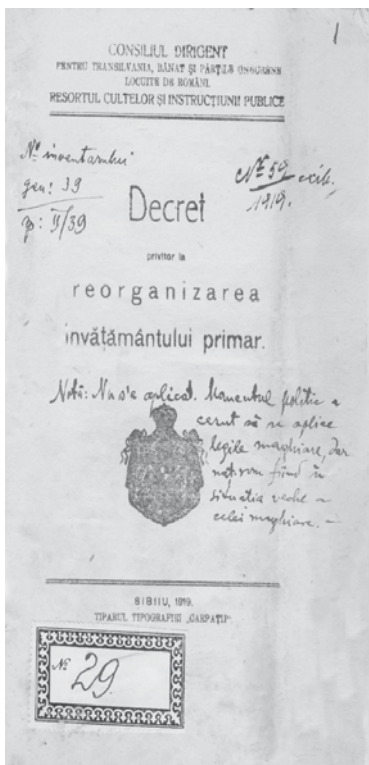 1
CONSILIUL DIRIGENT
PENTRU TRANSILVANIA, BĂNAT ȘI PĂRȚILE UNGURENE
LOCUITE DE ROMÂNI.
RESORTUL CULTELOR ȘI INSTRUCȚIUNII PUBLICE
No inventarului
gen: 39
II/39
No 59
1919.
Decret
privitor la
reorganizarea
învățământului primar.
Notă: Nu s'a aplicat. Momentul politic a
cerut să se aplice
legile maghiare, dar
fiind în
situația veche a
celei maghiare. —
SIBIIU, 1919.
TIPARUL TIPOGRAFIEI „CARPAȚII"
No 29